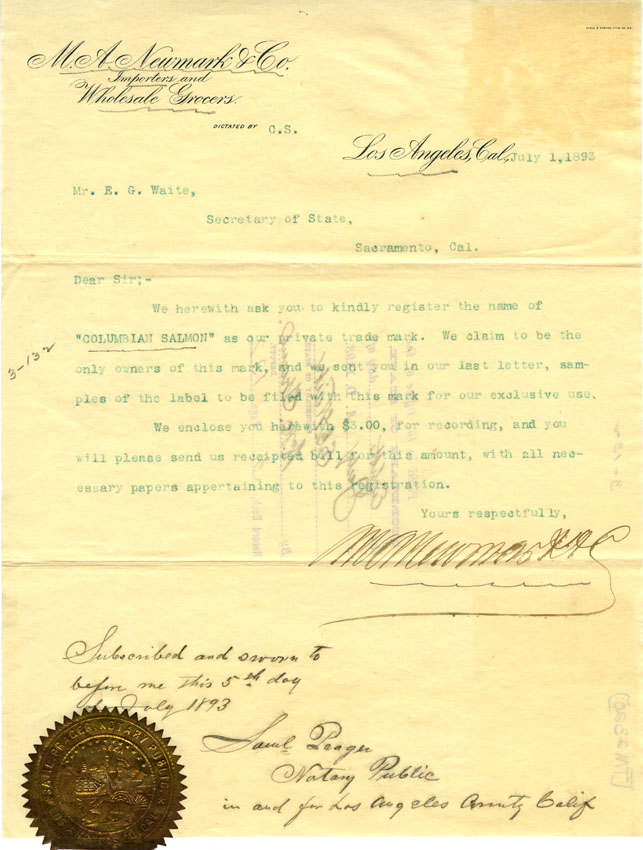 M. A. Newmark & Co.
Importers and
Wholesale Grocers.
DICTATED BY C.S.
Los Angeles, Cal., July 1,1893
Mr. E. G. Waite,
Secretary of State,
Sacramento, Cal.
Dear Sir;-
We herewith ask you to kindly register the name of
"COLUMBIAN SALMON" as our private trade mark. We claim to be the
only owners of this mark, and we sent you in our last letter, sam-
ples of the label to be filed with this mark for our exclusive use.
We enclose you herewith $3.00, for recording, and you
will please send us receipted bill for this amount, with all nec-
essary papers appertaining to this registration.
Yours respectfully,
M A Newmark & Co
3-132
Subscribed and sworn to
before me this 5th day
of July 1893
Saml Prager
Notary Public
in and for Los Angeles County Calif